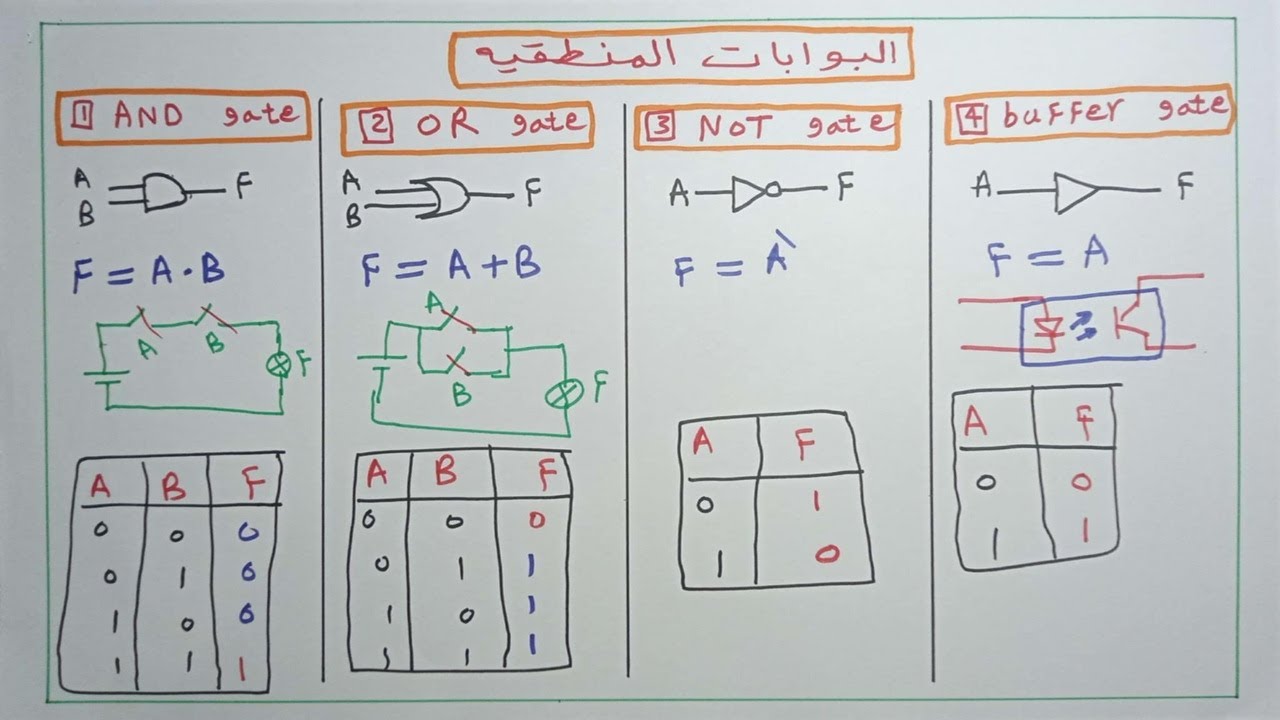 البوابات المنطقيه
1 AND gate
A
B
F
F = A · B
A
B
F
A B F
0 0 0
0 1 0
1 0 0
1 1 1
2 OR gate
A
B
F
F = A + B
A
B
F
A B F
0 0 0
0 1 1
1 0 1
1 1 1
3 NOT gate
A F
F = A`
A F
0 1
1 0
4 buffer gate
A F
F = A
A F
0 0
1 1